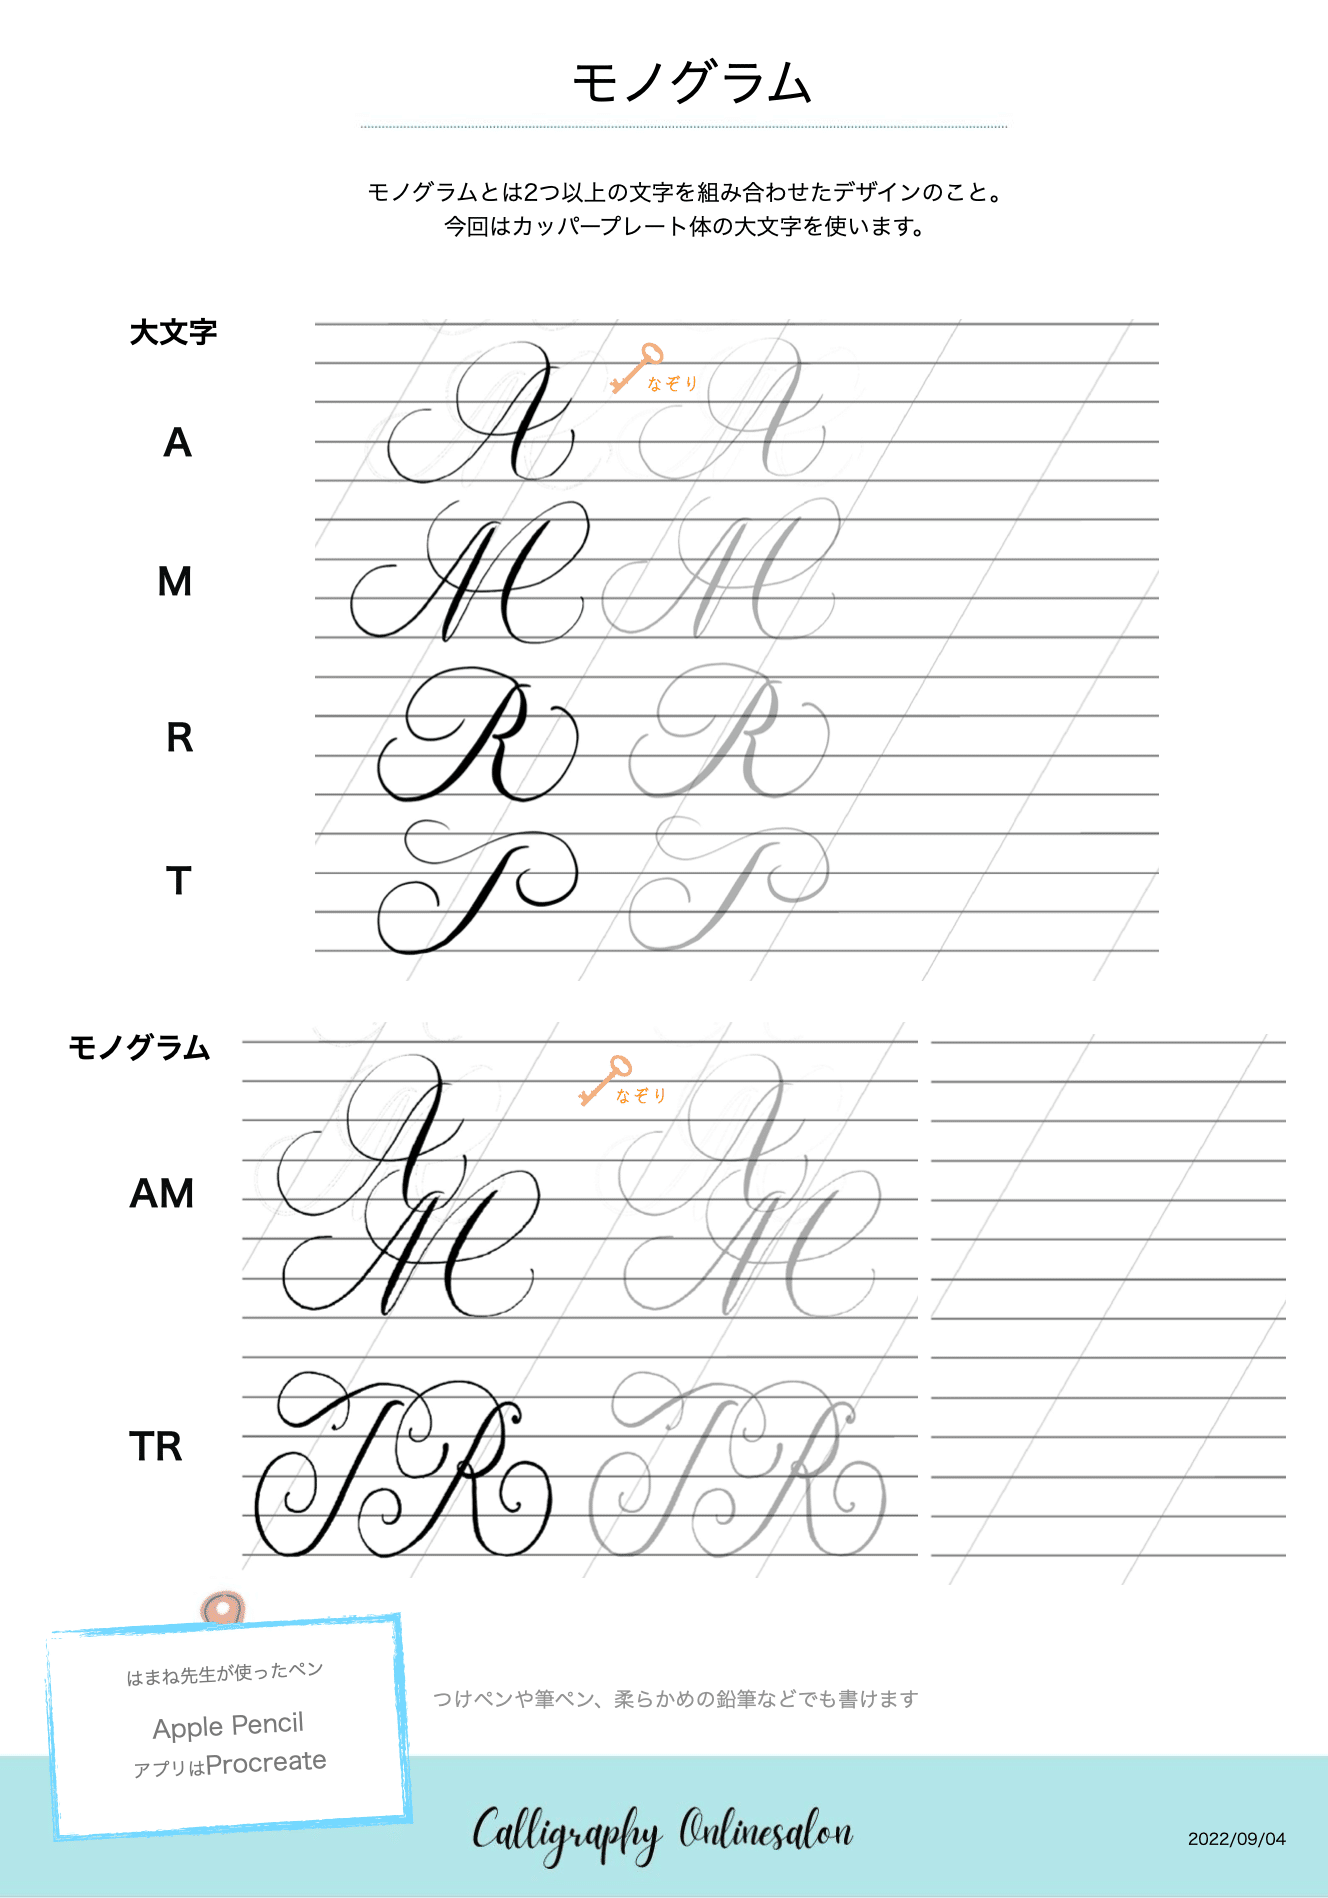 モノグラム
モノグラムとは2つ以上の文字を組み合わせたデザインのこと。
今回はカッパープレート体の大文字を使います。
大文字
なぞり
A
A
A
M
M
M
R
R
R
T
T
T
モノグラム
なぞり
AM
AM
AM
TR
TR
TR
はまね先生が使ったペン
Apple Pencil
アプリはProcreate
つけペンや筆ペン、柔らかめの鉛筆などでも書けます
Calligraphy Onlinesalon
2022/09/04